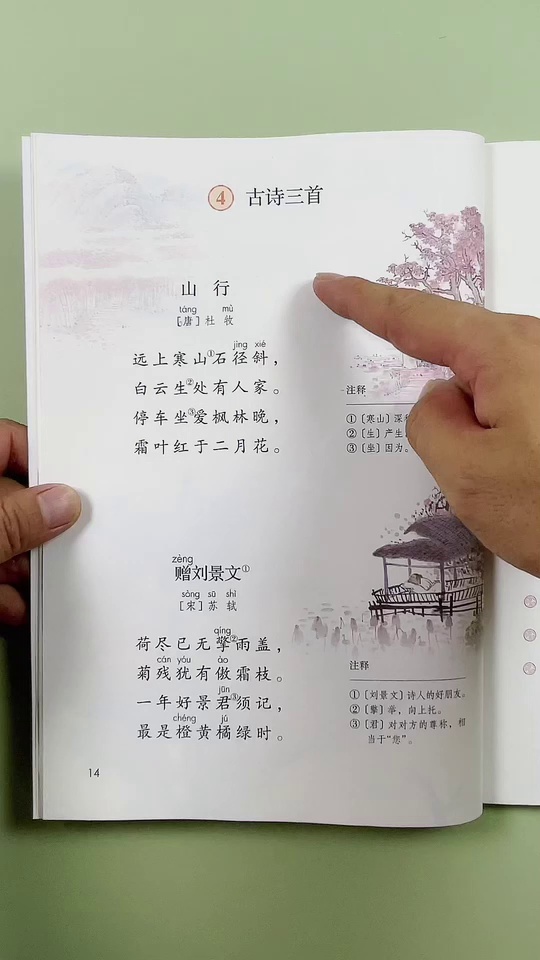 4 古诗三首
山 行
táng mù
[唐] 杜 牧
jìng xié
远上寒山①石径斜，
白云生②处有人家。
停车坐③爱枫林晚，
霜叶红于二月花。
注释
①〔寒山〕深
②〔生〕产生
③〔坐〕因为。
zèng
赠刘景文①
sòng sū shì
[宋] 苏 轼
qíng
荷尽已无擎②雨盖，
cán yóu ào
菊残犹有傲霜枝。
jūn
一年好景君③须记，
chéng jú
最是橙黄橘绿时。
注释
①〔刘景文〕诗人的好朋友。
②〔擎〕举，向上托。
③〔君〕对对方的尊称，相
当于“您”。
14